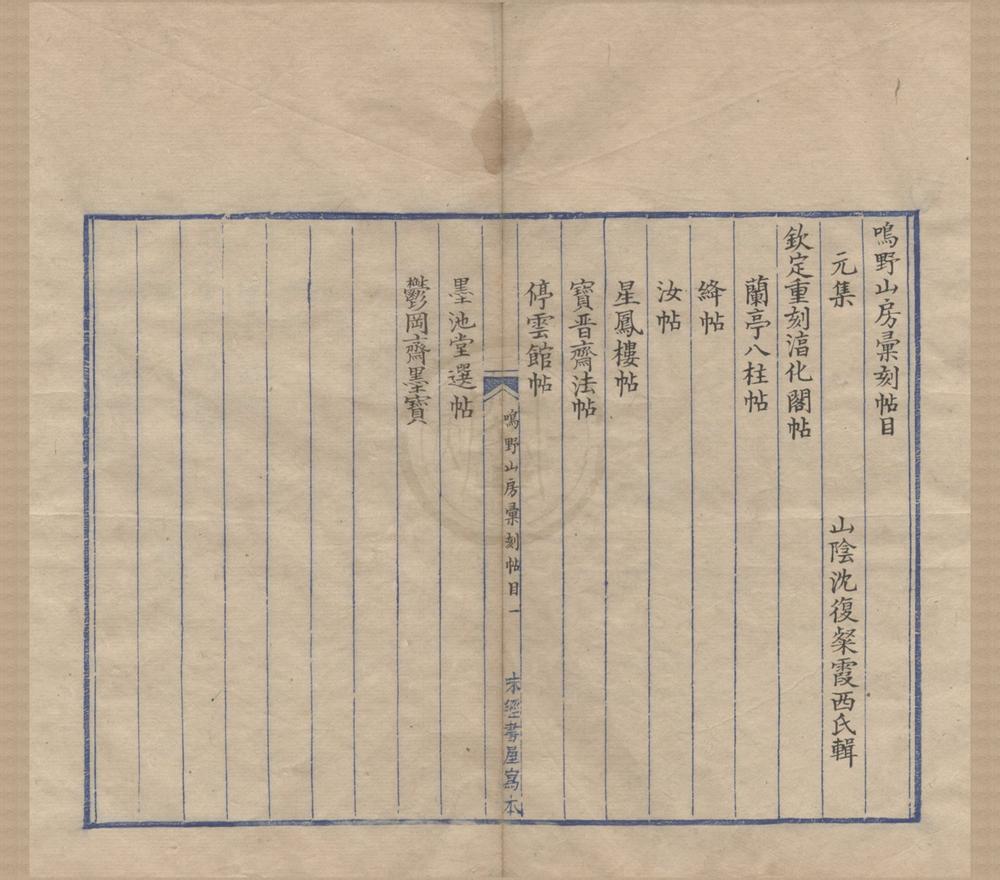 鳴野山房彙刻帖目
元集 山陰沈復粲霞西氏輯
欽定重刻淳化閣帖
蘭亭八柱帖
絳帖
汝帖
星鳳樓帖
寶晉齋法帖
停雲館帖
鳴野山房彙刻帖目 一
末經書屋寫本
墨池堂選帖
鬱岡齋墨寶